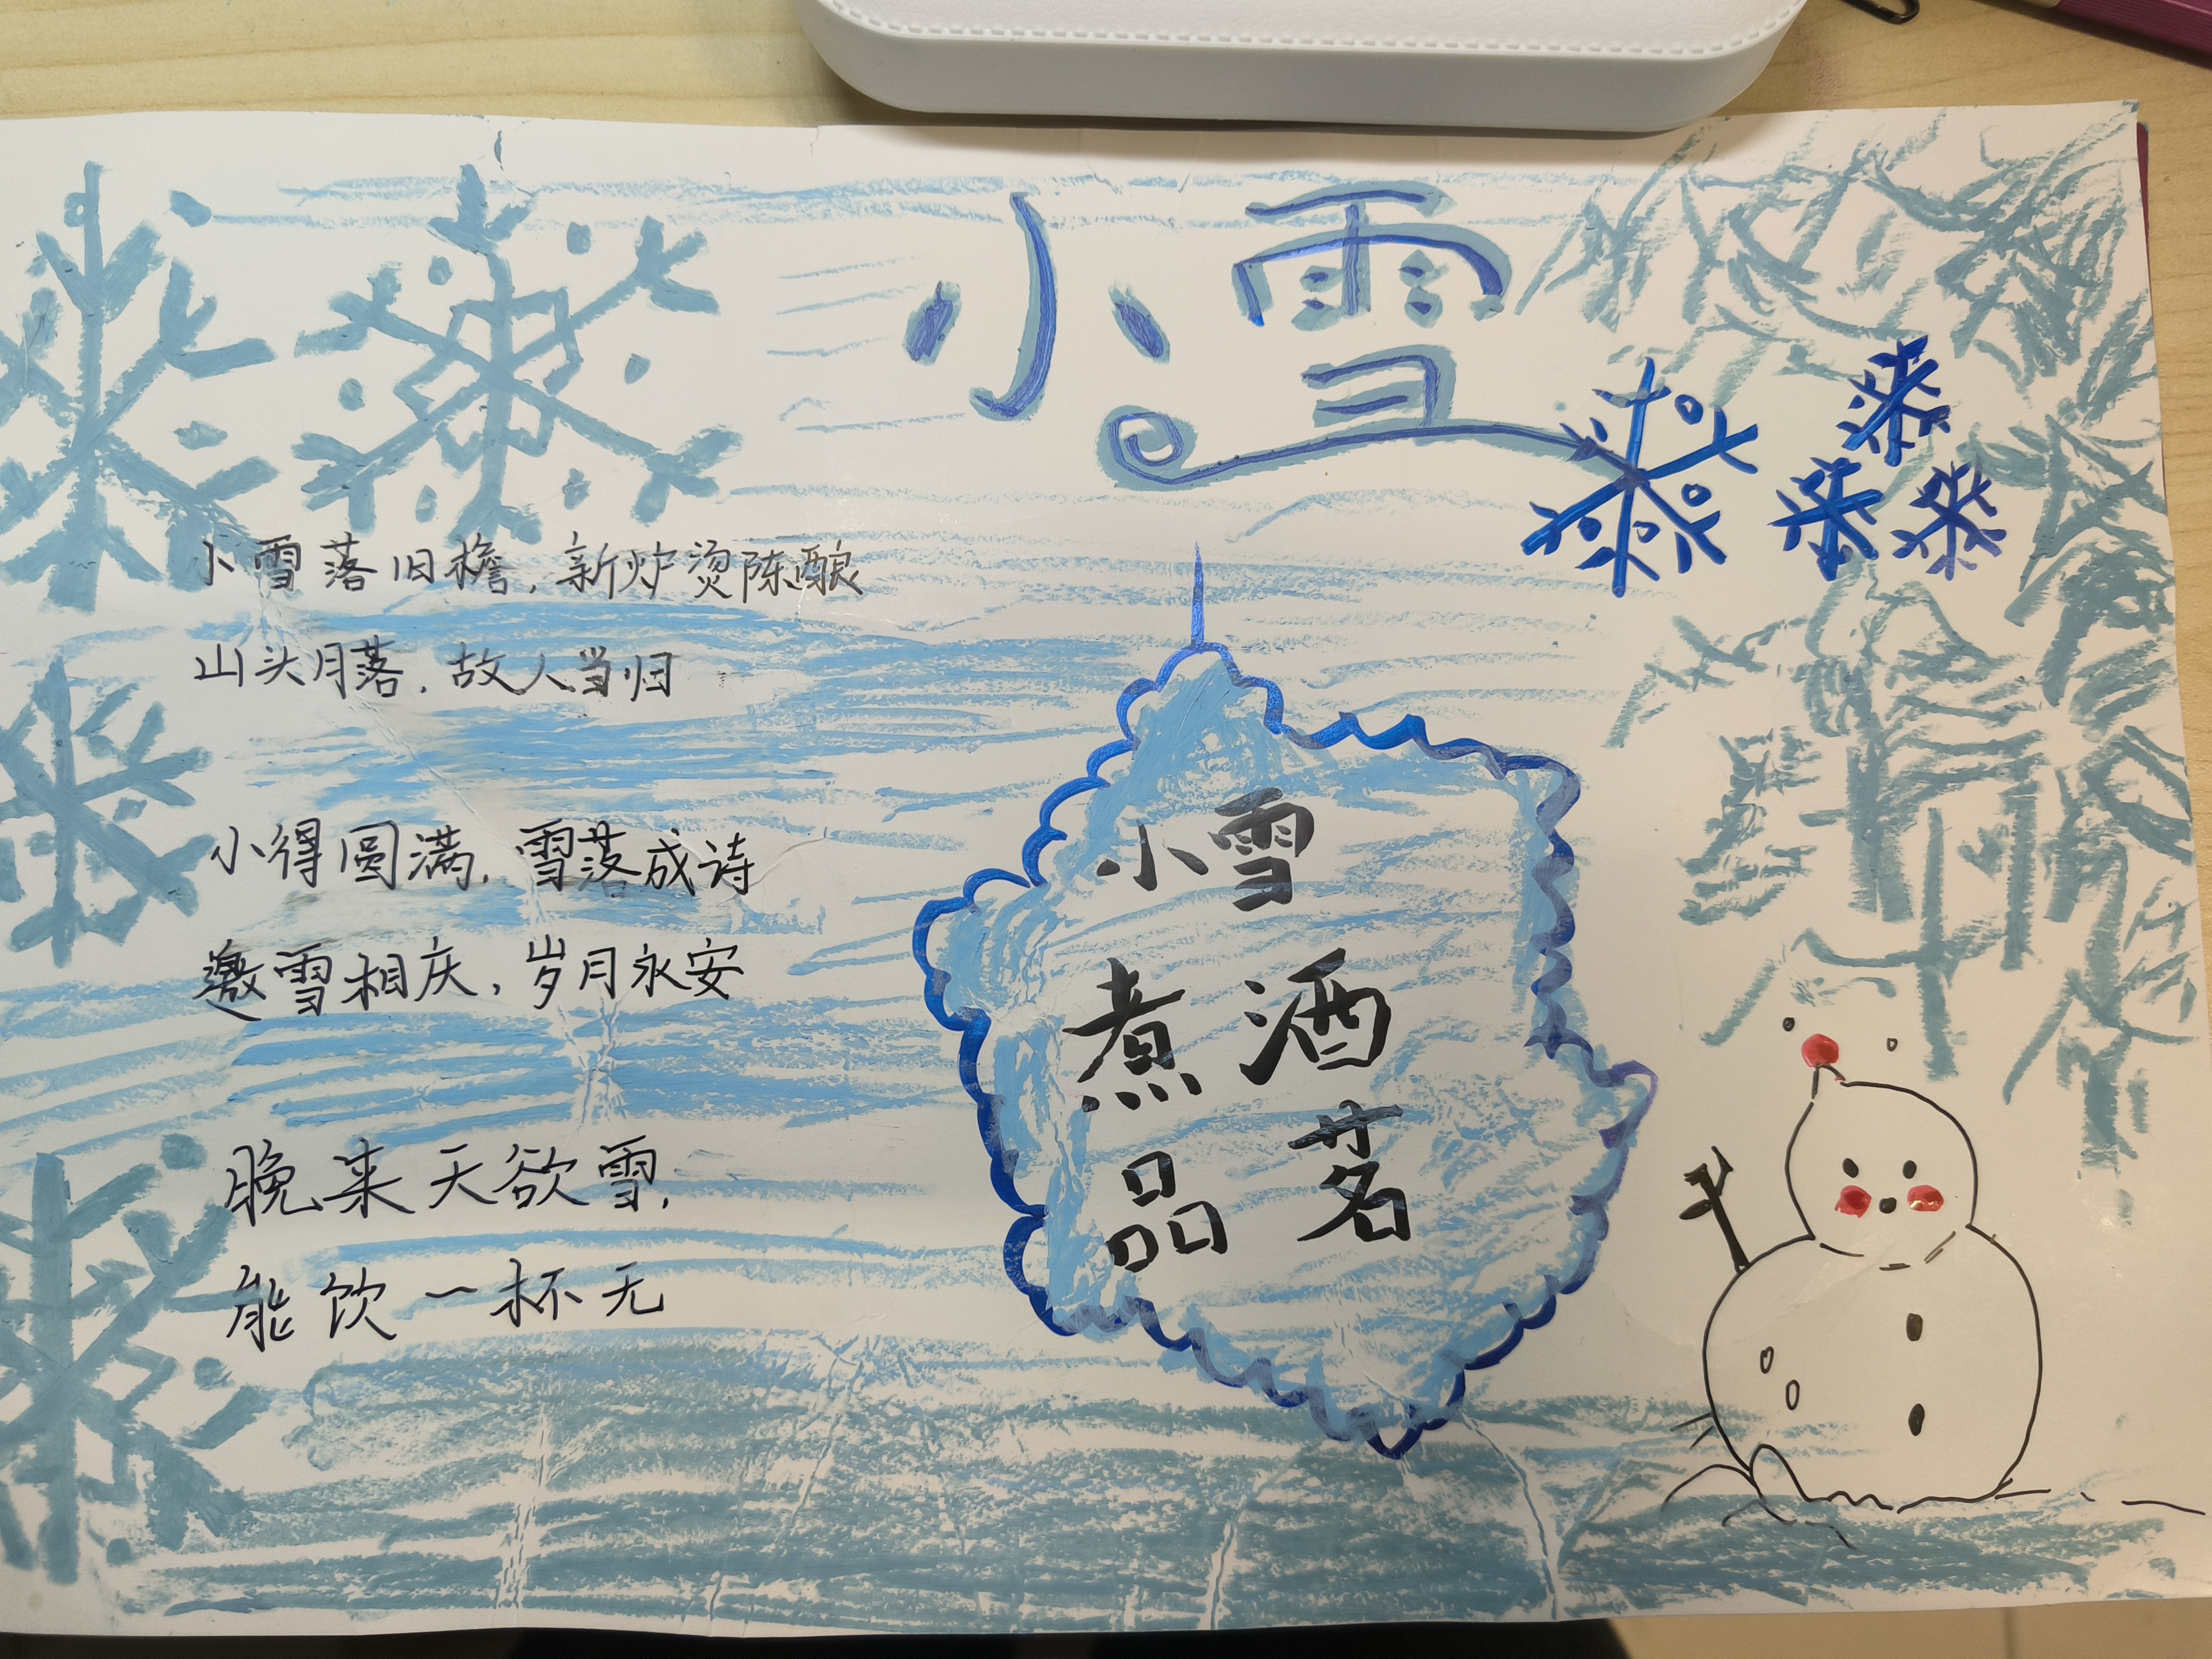 小雪
小雪落旧檐，新炉烫陈酿
山头月落，故人当归
小得圆满，雪落成诗
邀雪相庆，岁月永安
晚来天欲雪，
能饮一杯无
小雪
煮酒
品茗